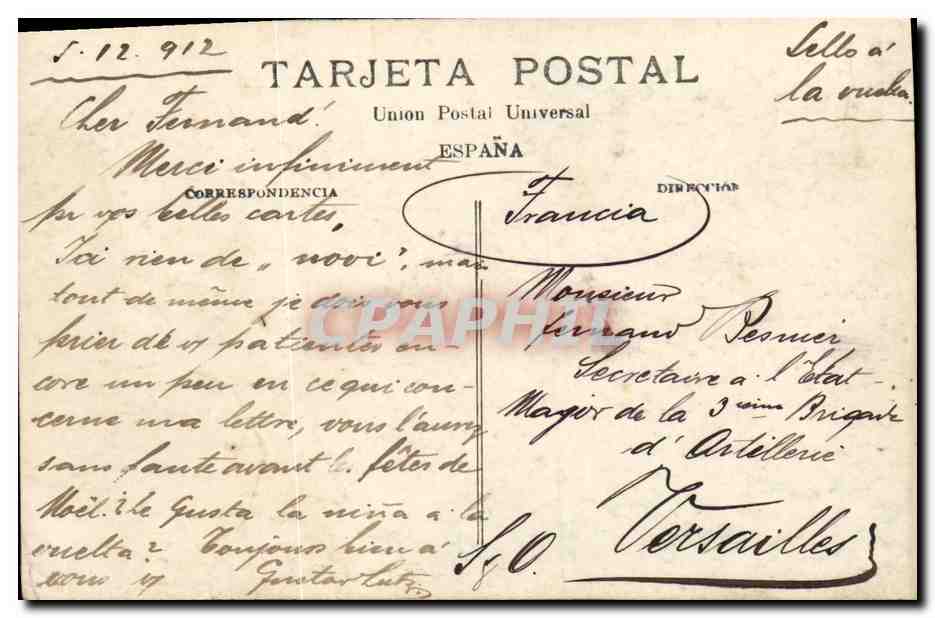 5.12.912
Sello á
la vuelta.
TARJETA POSTAL
Union Postal Universal
ESPAÑA
CORRESPONDENCIA
DIRECCIÓN
Cher Fernand!
Merci infiniment
pr vos belles cartes,
Ici rien de "novi", mais
tout de même je dois vous
prier de vs patienter en-
core un peu en ce qui con-
cerne ma lettre, vous l'aurez
sans faute avant les fêtes de
Noël. ¿ Le gusta la niña a la
vuelta? Toujours bien à
vous vs Gustav
Francia
Monsieur
Fernand Besnier
Secretaire a l'Etat-
Major de la 3ième Brigade
d'Artillerie
Versailles
S/O.
CPAPHIL